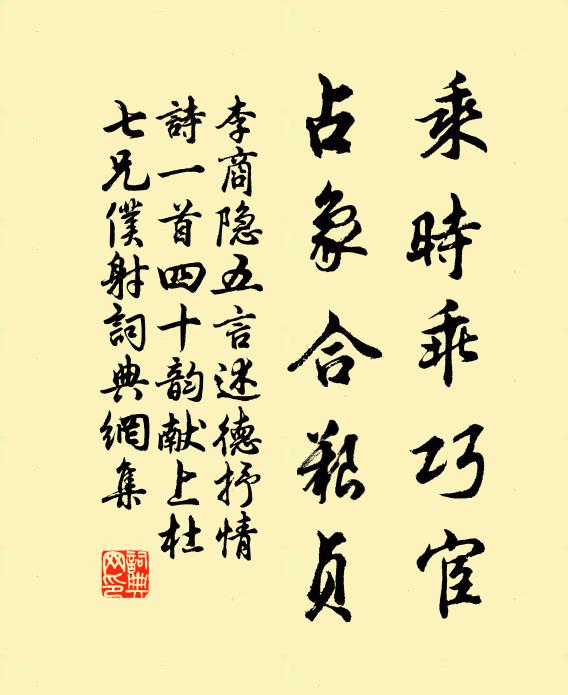 乘時乖巧宦
占象合艱貞
李商隐五言述德抒情
詩一首四十韵献上杜
七兄僕射詞典網集
詞典网印